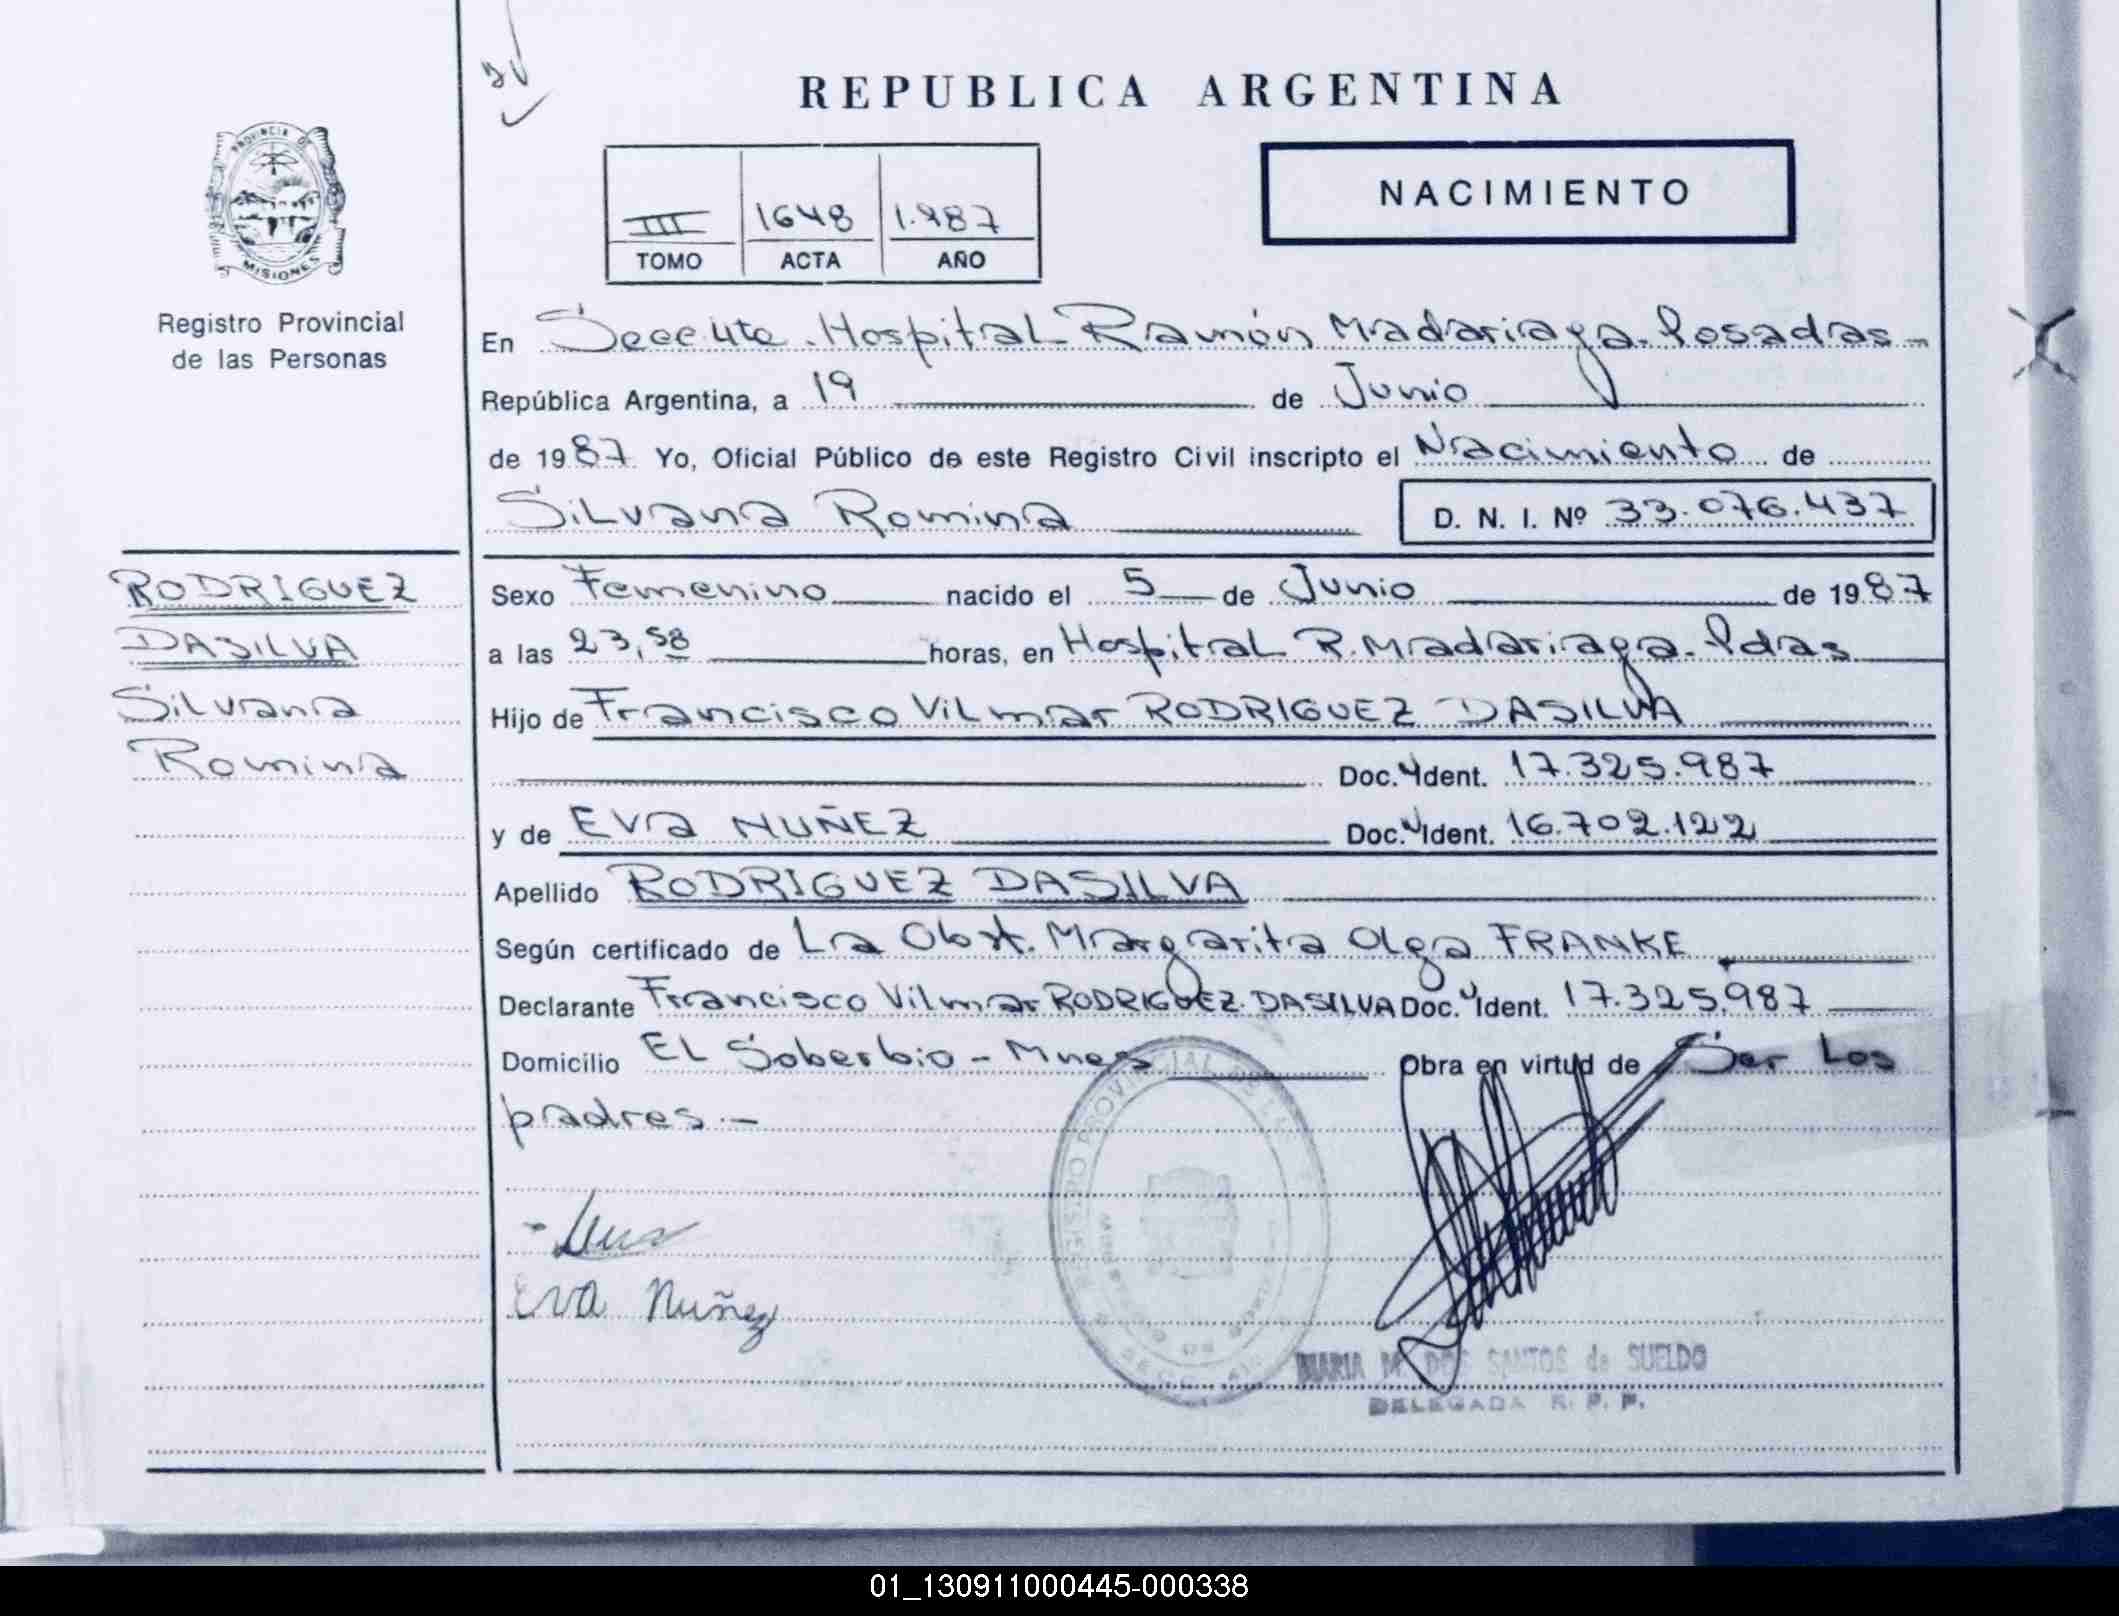 REPUBLICA ARGENTINA
PROVINCIA DE
MISIONES
Registro Provincial
de las Personas
NACIMIENTO
III 1648 1.987
TOMO ACTA AÑO
En Hospital Ramón Madariaga. Posadas -
República Argentina, a 19 de Junio
de 1987 Yo, Oficial Público de este Registro Civil inscripto el Nacimiento de
Silvana Romina D. N. I. Nº 33.076.437
RODRIGUEZ
DASILVA
Silvana
Romina
Sexo Femenino nacido el 5 de Junio de 1987
a las 23,58 horas, en Hospital R. Madariaga. Pdas
Hijo de Francisco Vilmar RODRIGUEZ DASILVA
Doc. Ident. 17.325.987
y de Eva NUÑEZ Doc. Ident. 16.702.122
Apellido RODRIGUEZ DASILVA
Según certificado de La Obst. Margarita Olga FRANKE
Declarante Francisco Vilmar RODRIGUEZ DASILVA Doc. Ident. 17.325.987
Domicilio El Soberbio - Mnes Obra en virtud de Ser Los
padres. -
Eva Nuñez
MARIA M. DOS SANTOS de SUELDO
DELEGADA R. P. P.
01_130911000445-000338